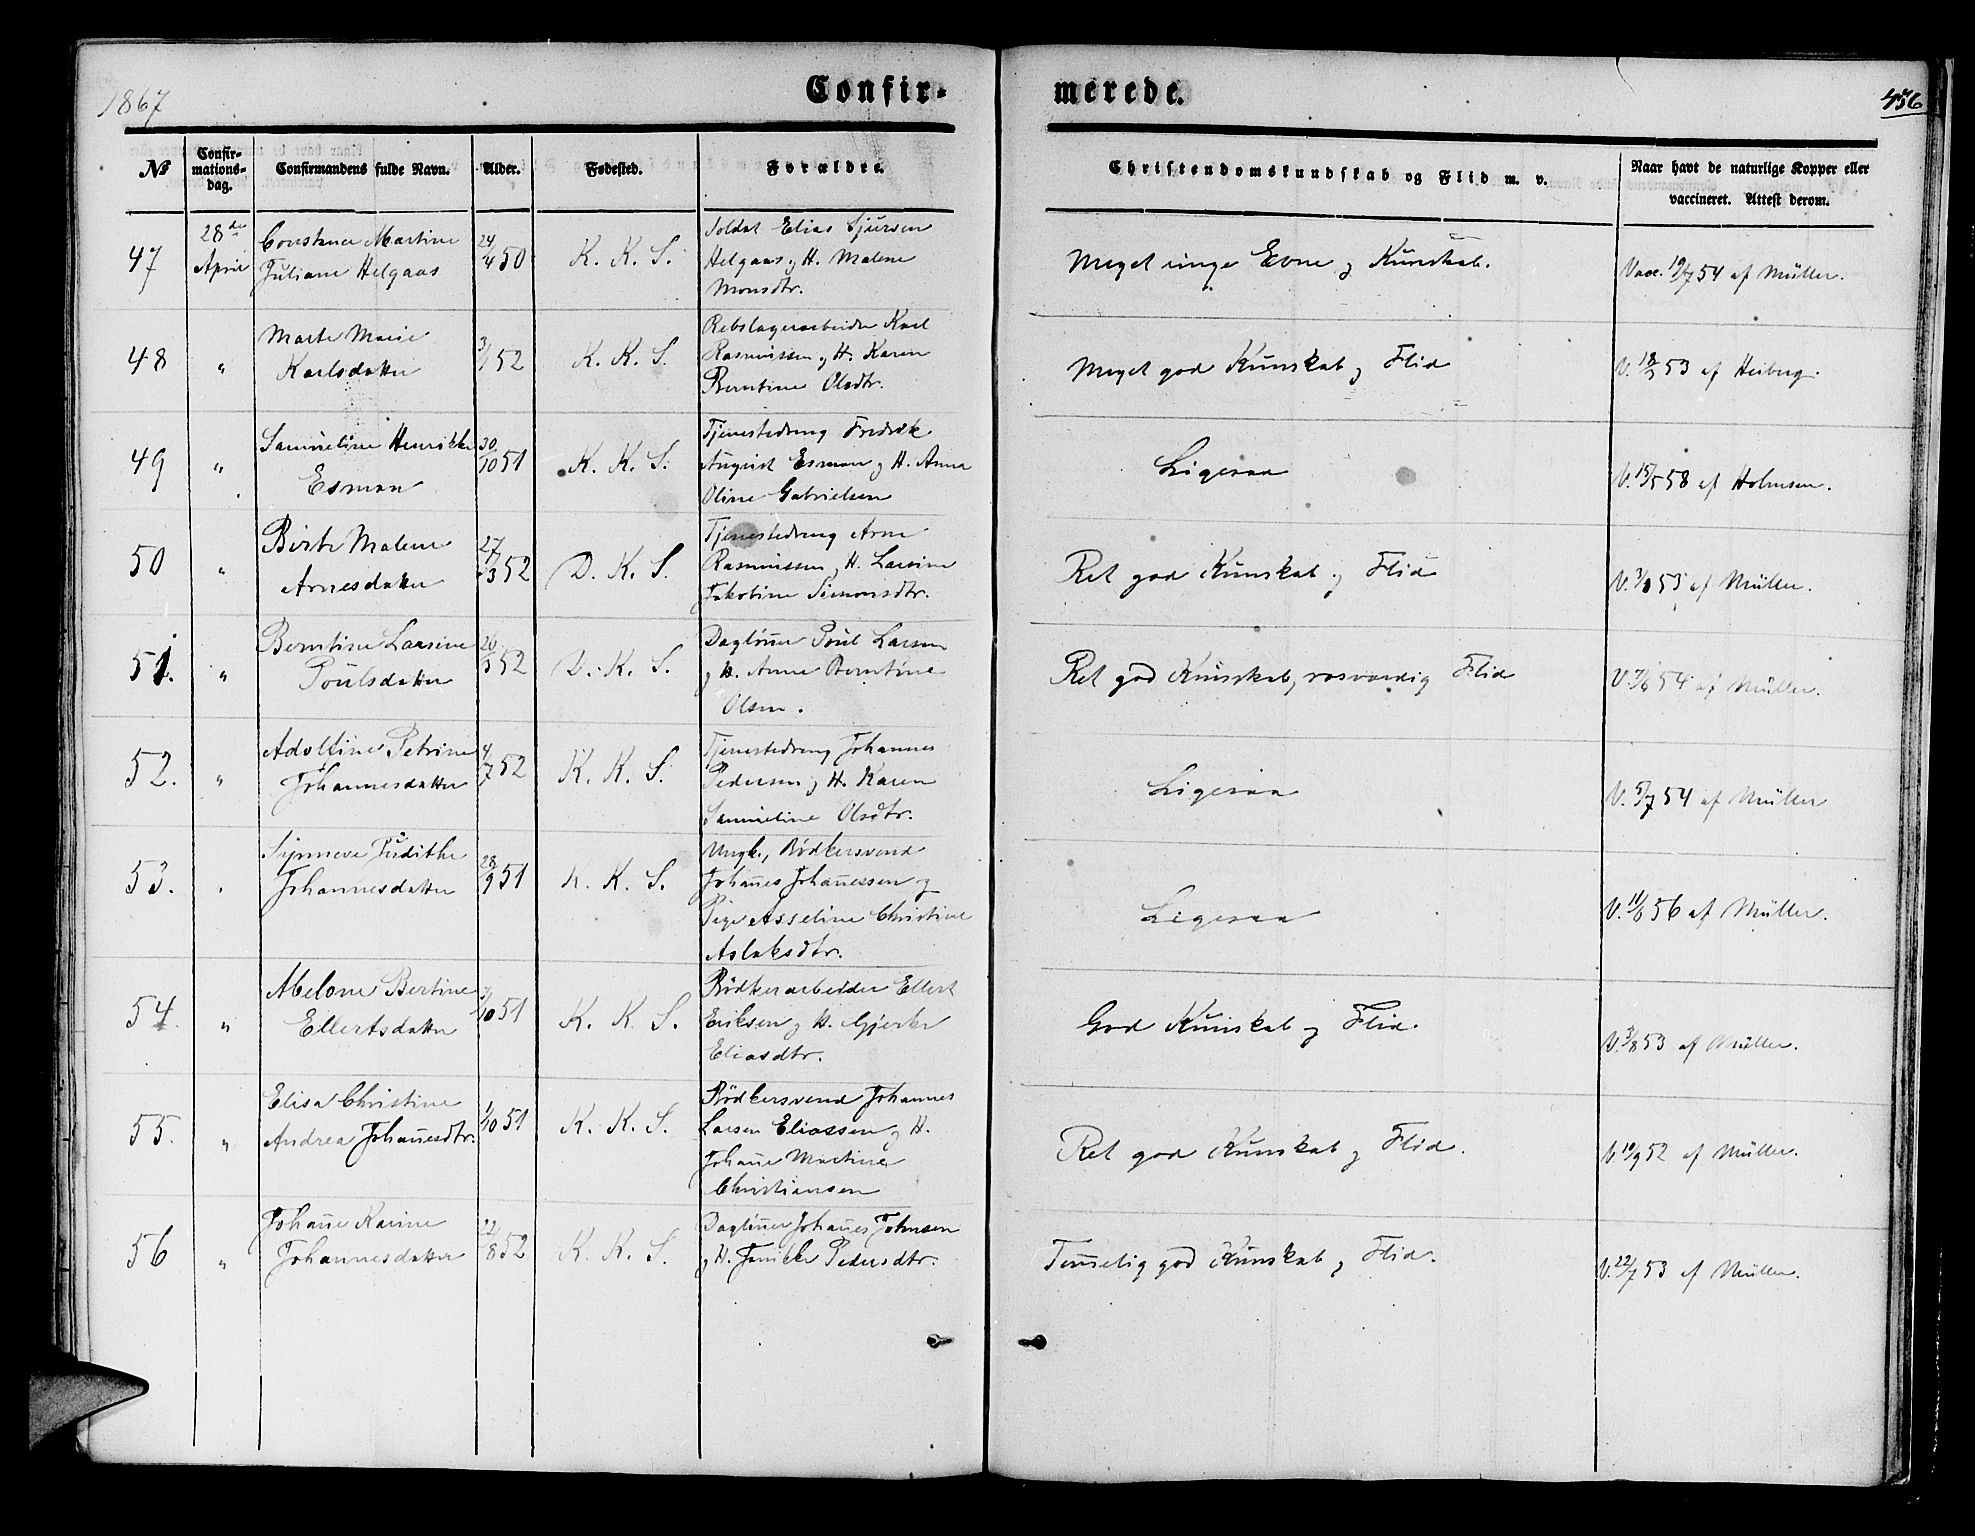 1867
Confir-
merede.
456
№
Confir-
mations-
dag.
Confirmandens fulde Navn.
Alder.
Fødested.
Forældre.
Christendomskundskab og Flid m. v.
Naar havt de naturlige Kopper eller
vaccineret. Attest derom.
47
28de
April
Constance Martine
Juliane Helgaas
24/4 50
K. K. S.
Soldat Elias Sjursen
Helgaas og H. Malene
Monsdtr.
Meget ringe Evne og Kunskab.
Vacc. 19/7 54 af Müller.
48
"
Marte Marie
Karlsdatter
3/1 52
K. K. S.
Rebslagerarbeider Karl
Rasmussen og H. Karen
Berntine Olsdtr.
Meget god Kunskab og Flid
V. 18/3 53 af Heiberg.
49
"
Samueline Henrikke
Esman
30/10 51
K. K. S.
Tjenestedreng Fredrik
August Esman og H. Anna
Oline Gabrielsen
Ligesaa
V. 15/5 58 af Holmsen.
50
"
Birte Malene
Arnesdatter
27/3 52
D. K. S.
Tjenestedreng Arne
Rasmussen og H. Larsine
Jakobine Simonsdtr.
Ret god Kunskab og Flid
V. 3/8 53 af Müller.
51.
"
Berntine Larsine
Poulsdatter
26/3 52
D. K. S.
Dagløner Poul Larsen
og H. Anne Berntine
Olsen.
Ret god Kunskab, rosværdig Flid
V. 7/6 54 af Müller.
52.
"
Adolfine Petrine
Johannesdatter
4/7 52
K. K. S.
Tjenestedreng Johannes
Pedersen og H. Karen
Samueline Olsdtr.
Ligesaa
V. 5/7 54 af Müller
53.
"
Synneve Judithe
Johannesdatter
28/9 51
K. K. S.
Ungk., Bødkersvend
Johanes Johanessen og
Pige Asseline Christine
Aslaksdtr.
Ligesaa
V. 11/6 56 af Müller.
54.
"
Abelone Bertine
Ellertsdatter
3/10 51
K. K. S.
Bødkerarbeider Ellert
Eriksen og H. Gjerte
Eliasdtr.
God Kunskab og Flid.
V. 3/8 53 af Müller.
55.
"
Elisa Christine
Andrea Johanesdtr.
1/10 51
K. K. S.
Bødkersvend Johannes
Larsen Eliassen og H.
Johane Martine
Christiansen
Ret god Kunskab og Flid.
V. 10/9 52 af Müller.
56
"
Johane Karine
Johannesdatter
22/8 52
K. K. S.
Dagløner Johanes Johnsen
og H. Jenikke Pedersdtr.
Temelig god Kunskab og Flid.
V. 22/7 53 af Müller.